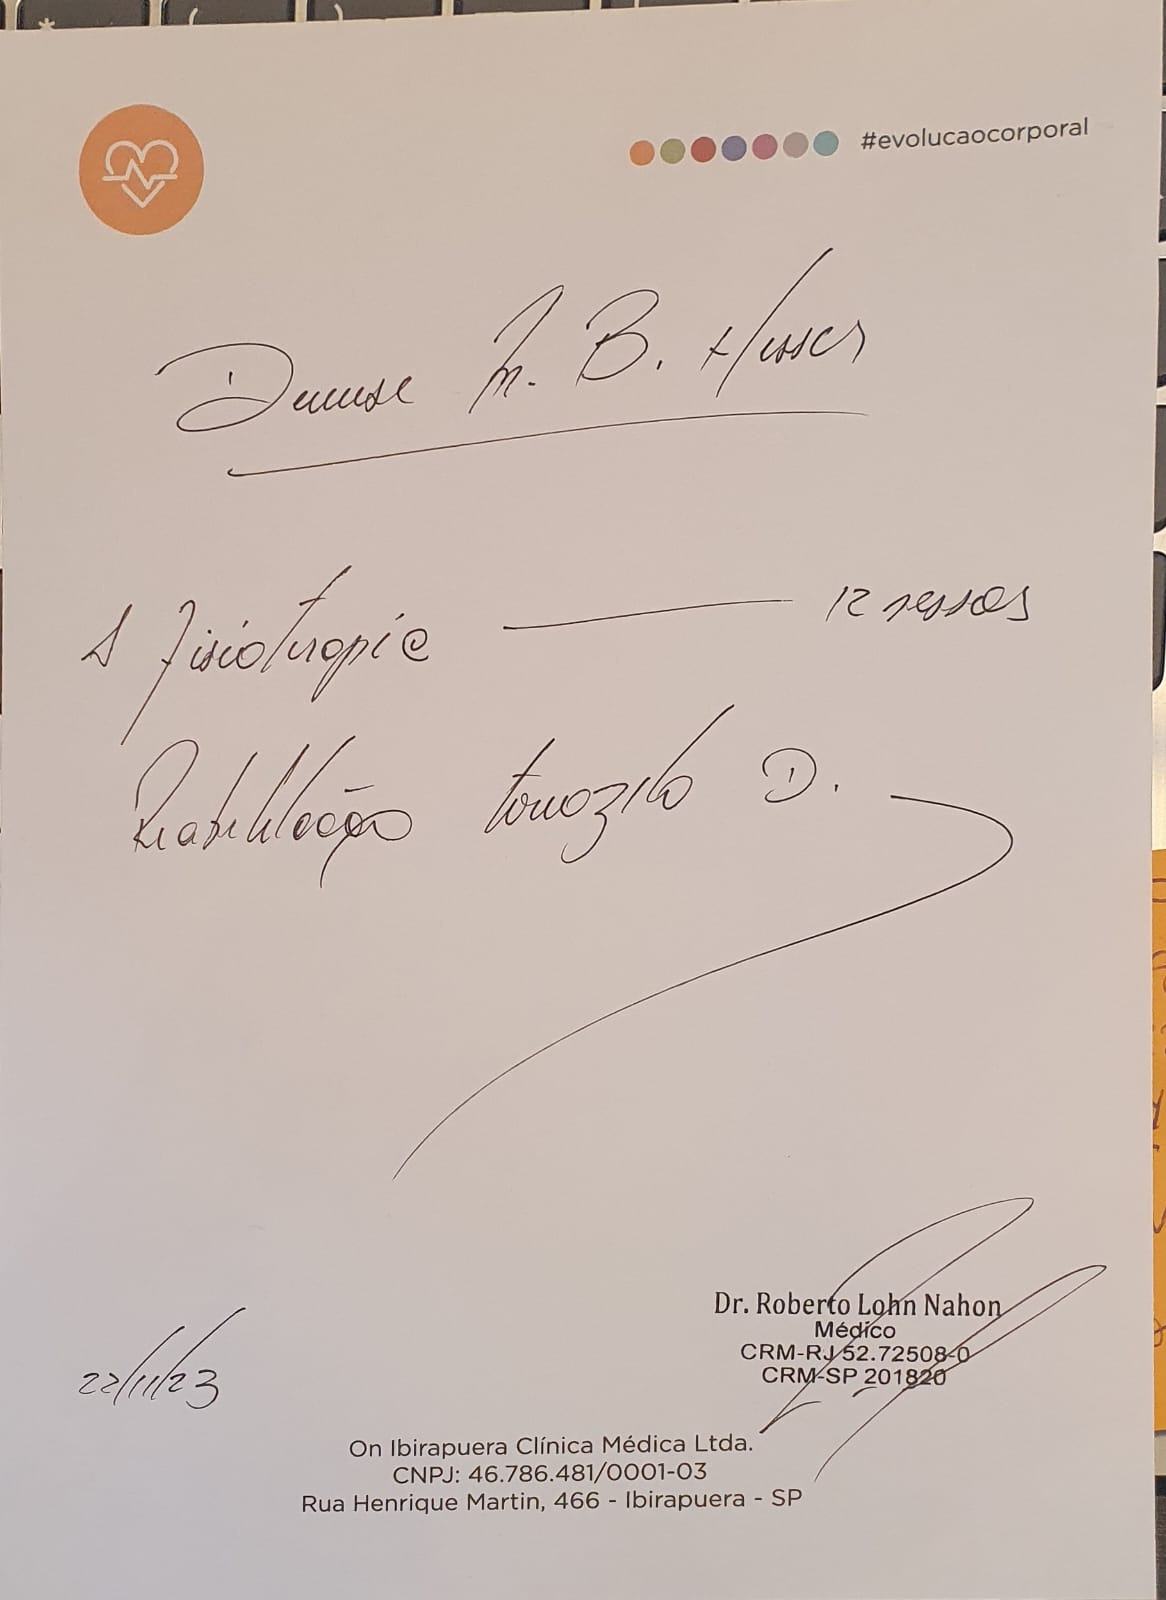 #evolucaocorporal
Denise M. B. Messer
À Fisioterapia 12 sessões
Reabilitação tornozelo D.
22/11/23
Dr. Roberto Lohn Nahon
Médico
CRM-RJ 52.72508-0
CRM-SP 201820
On Ibirapuera Clínica Médica Ltda.
CNPJ: 46.786.481/0001-03
Rua Henrique Martin, 466 - Ibirapuera - SP